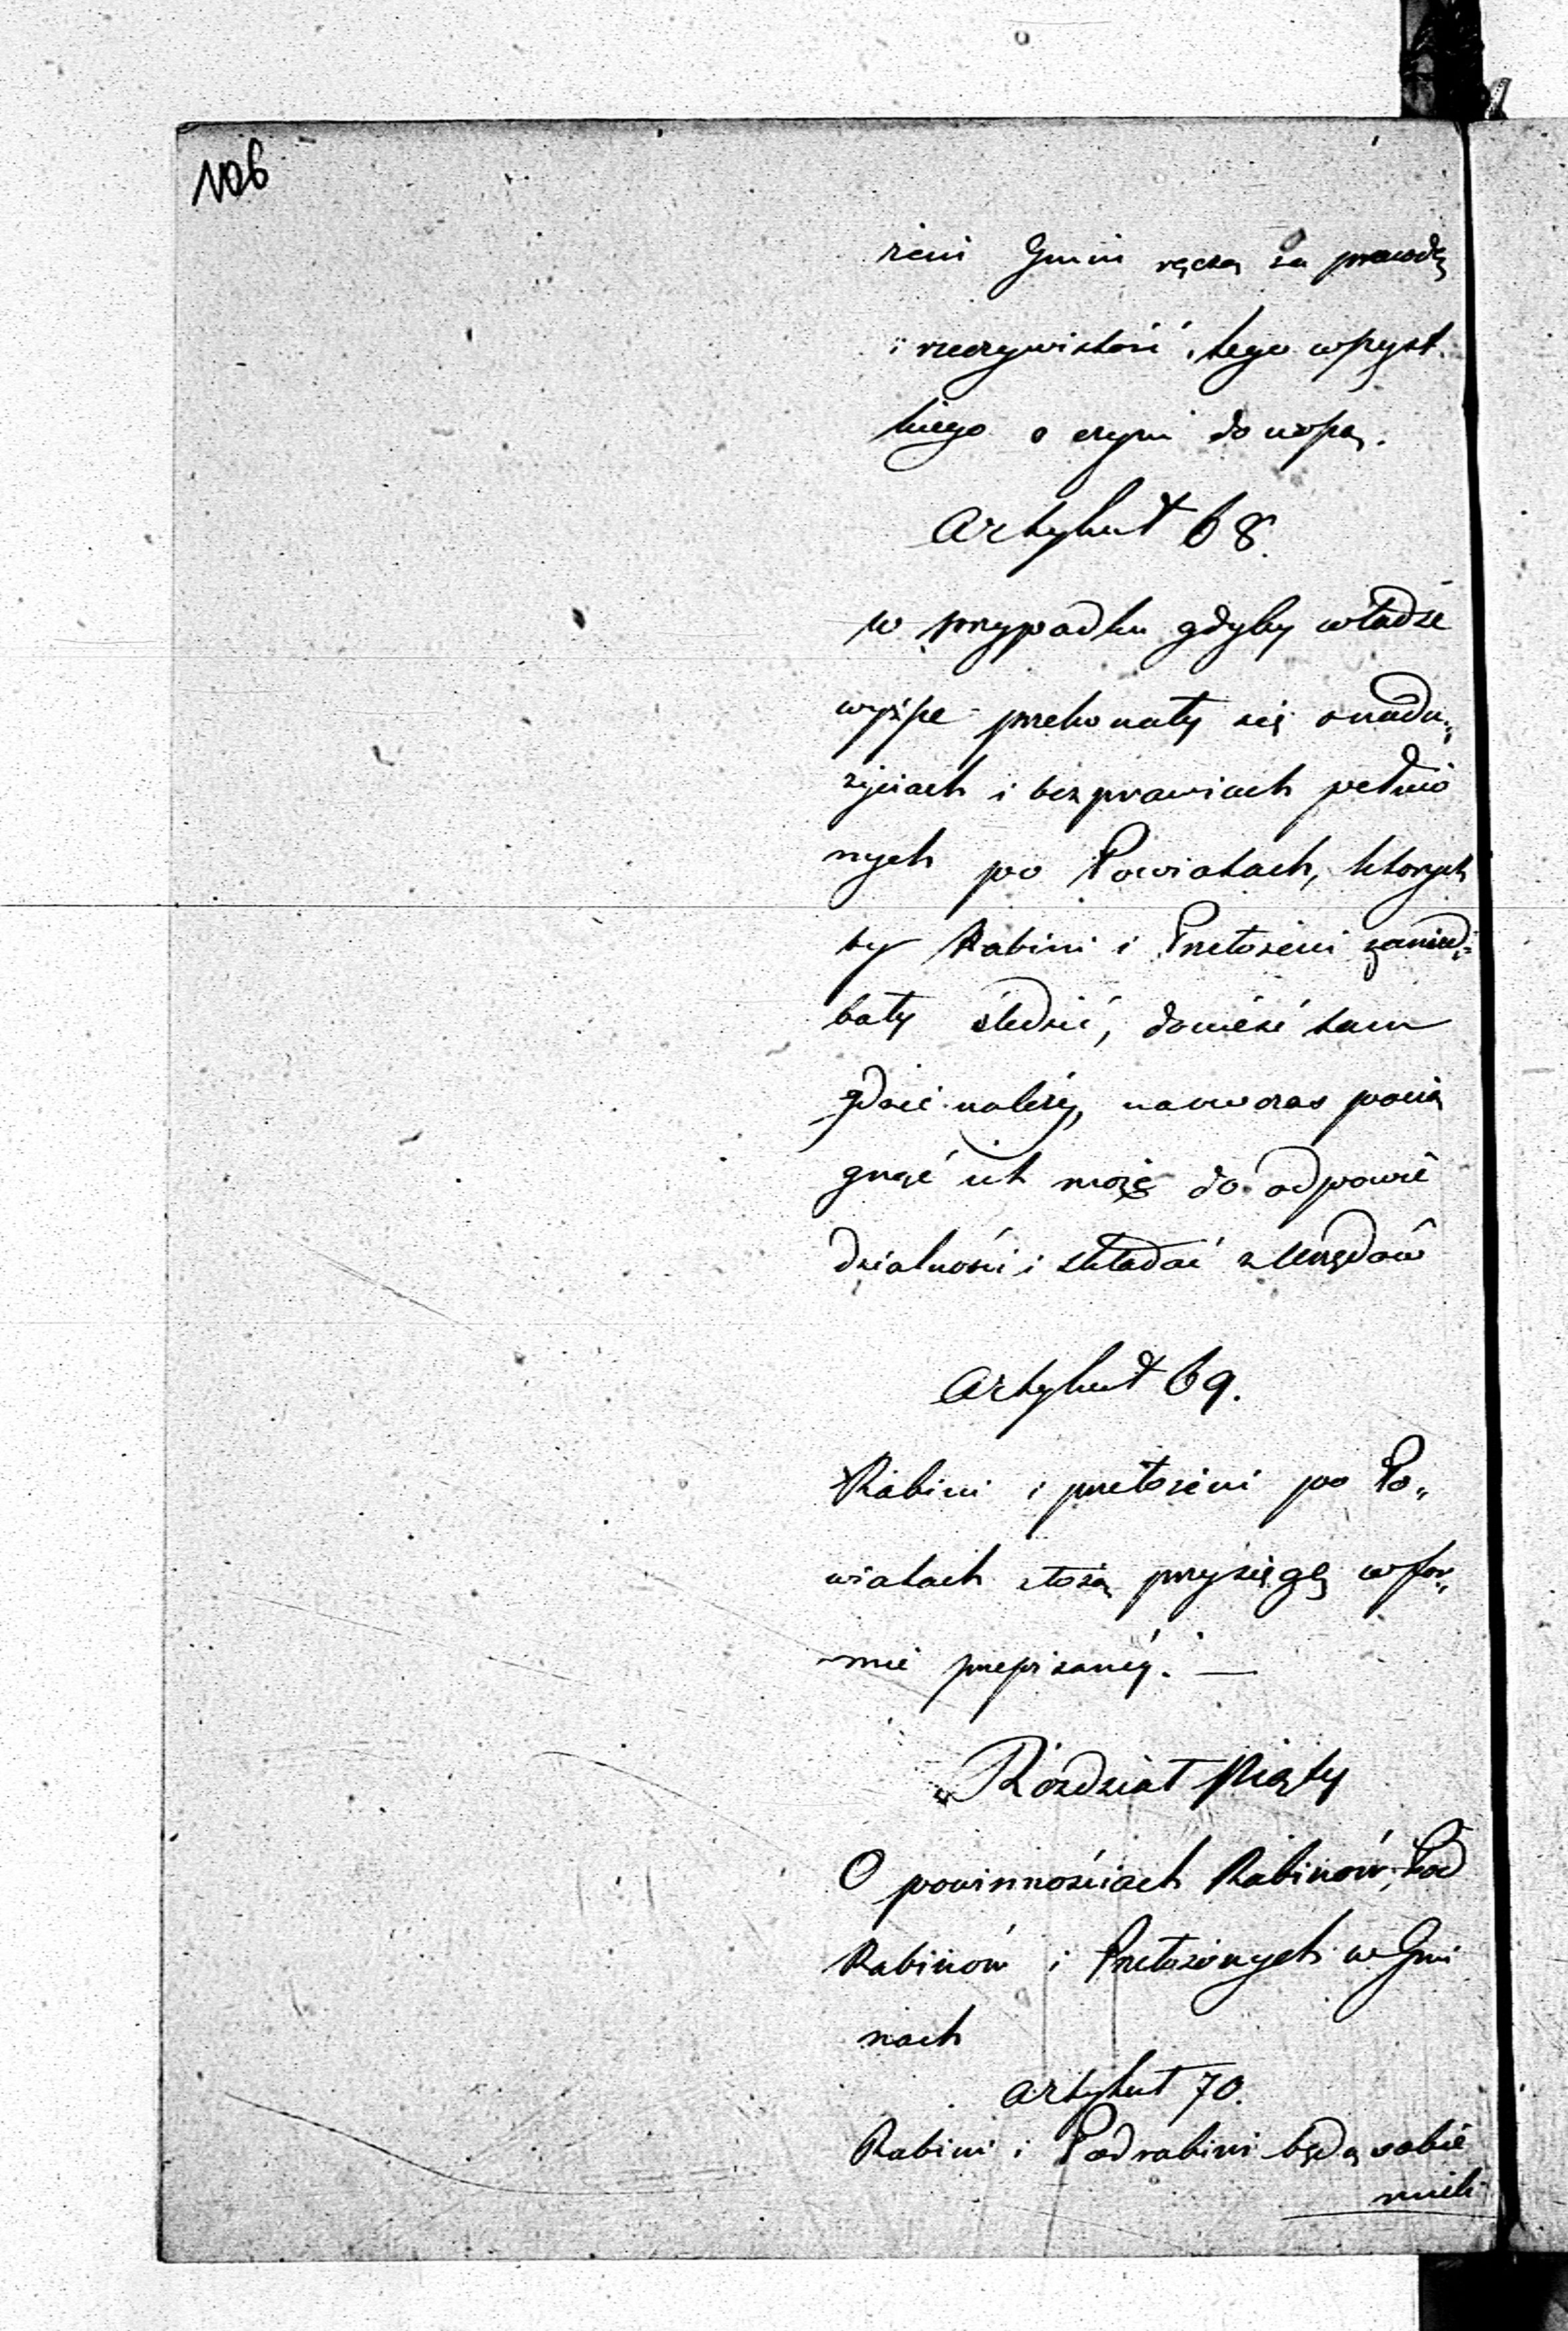 106
żeni Gmin ręczą za prawdę
i rzeczywistość, tego wszyst
kiego o czym donoszą.
Artykuł 68.
w przypadku gdyby władze
wyższe przekonały się o nadu„
życiach i bezprawiach pełnio
nych po Powiatach, ktorych
by Rabini i Przełożeni zanied„
bały śledzić, donieść tam
gdzie należy, naówczas pocią
gnąć ich może do odpowie
dzialności i składać z Urzędów
Artykuł 69.
Rabini i przełożeni po Po„
wiatach złożą przysięgę w for„
mie przepisanéy. —
Rózdział Piąty
O powinnościach Rabinów, Pod
Rabinów i Przełożonych w Gmi
nach
Artykuł 70.
Rabini i Podrabini będą sobie
mieli